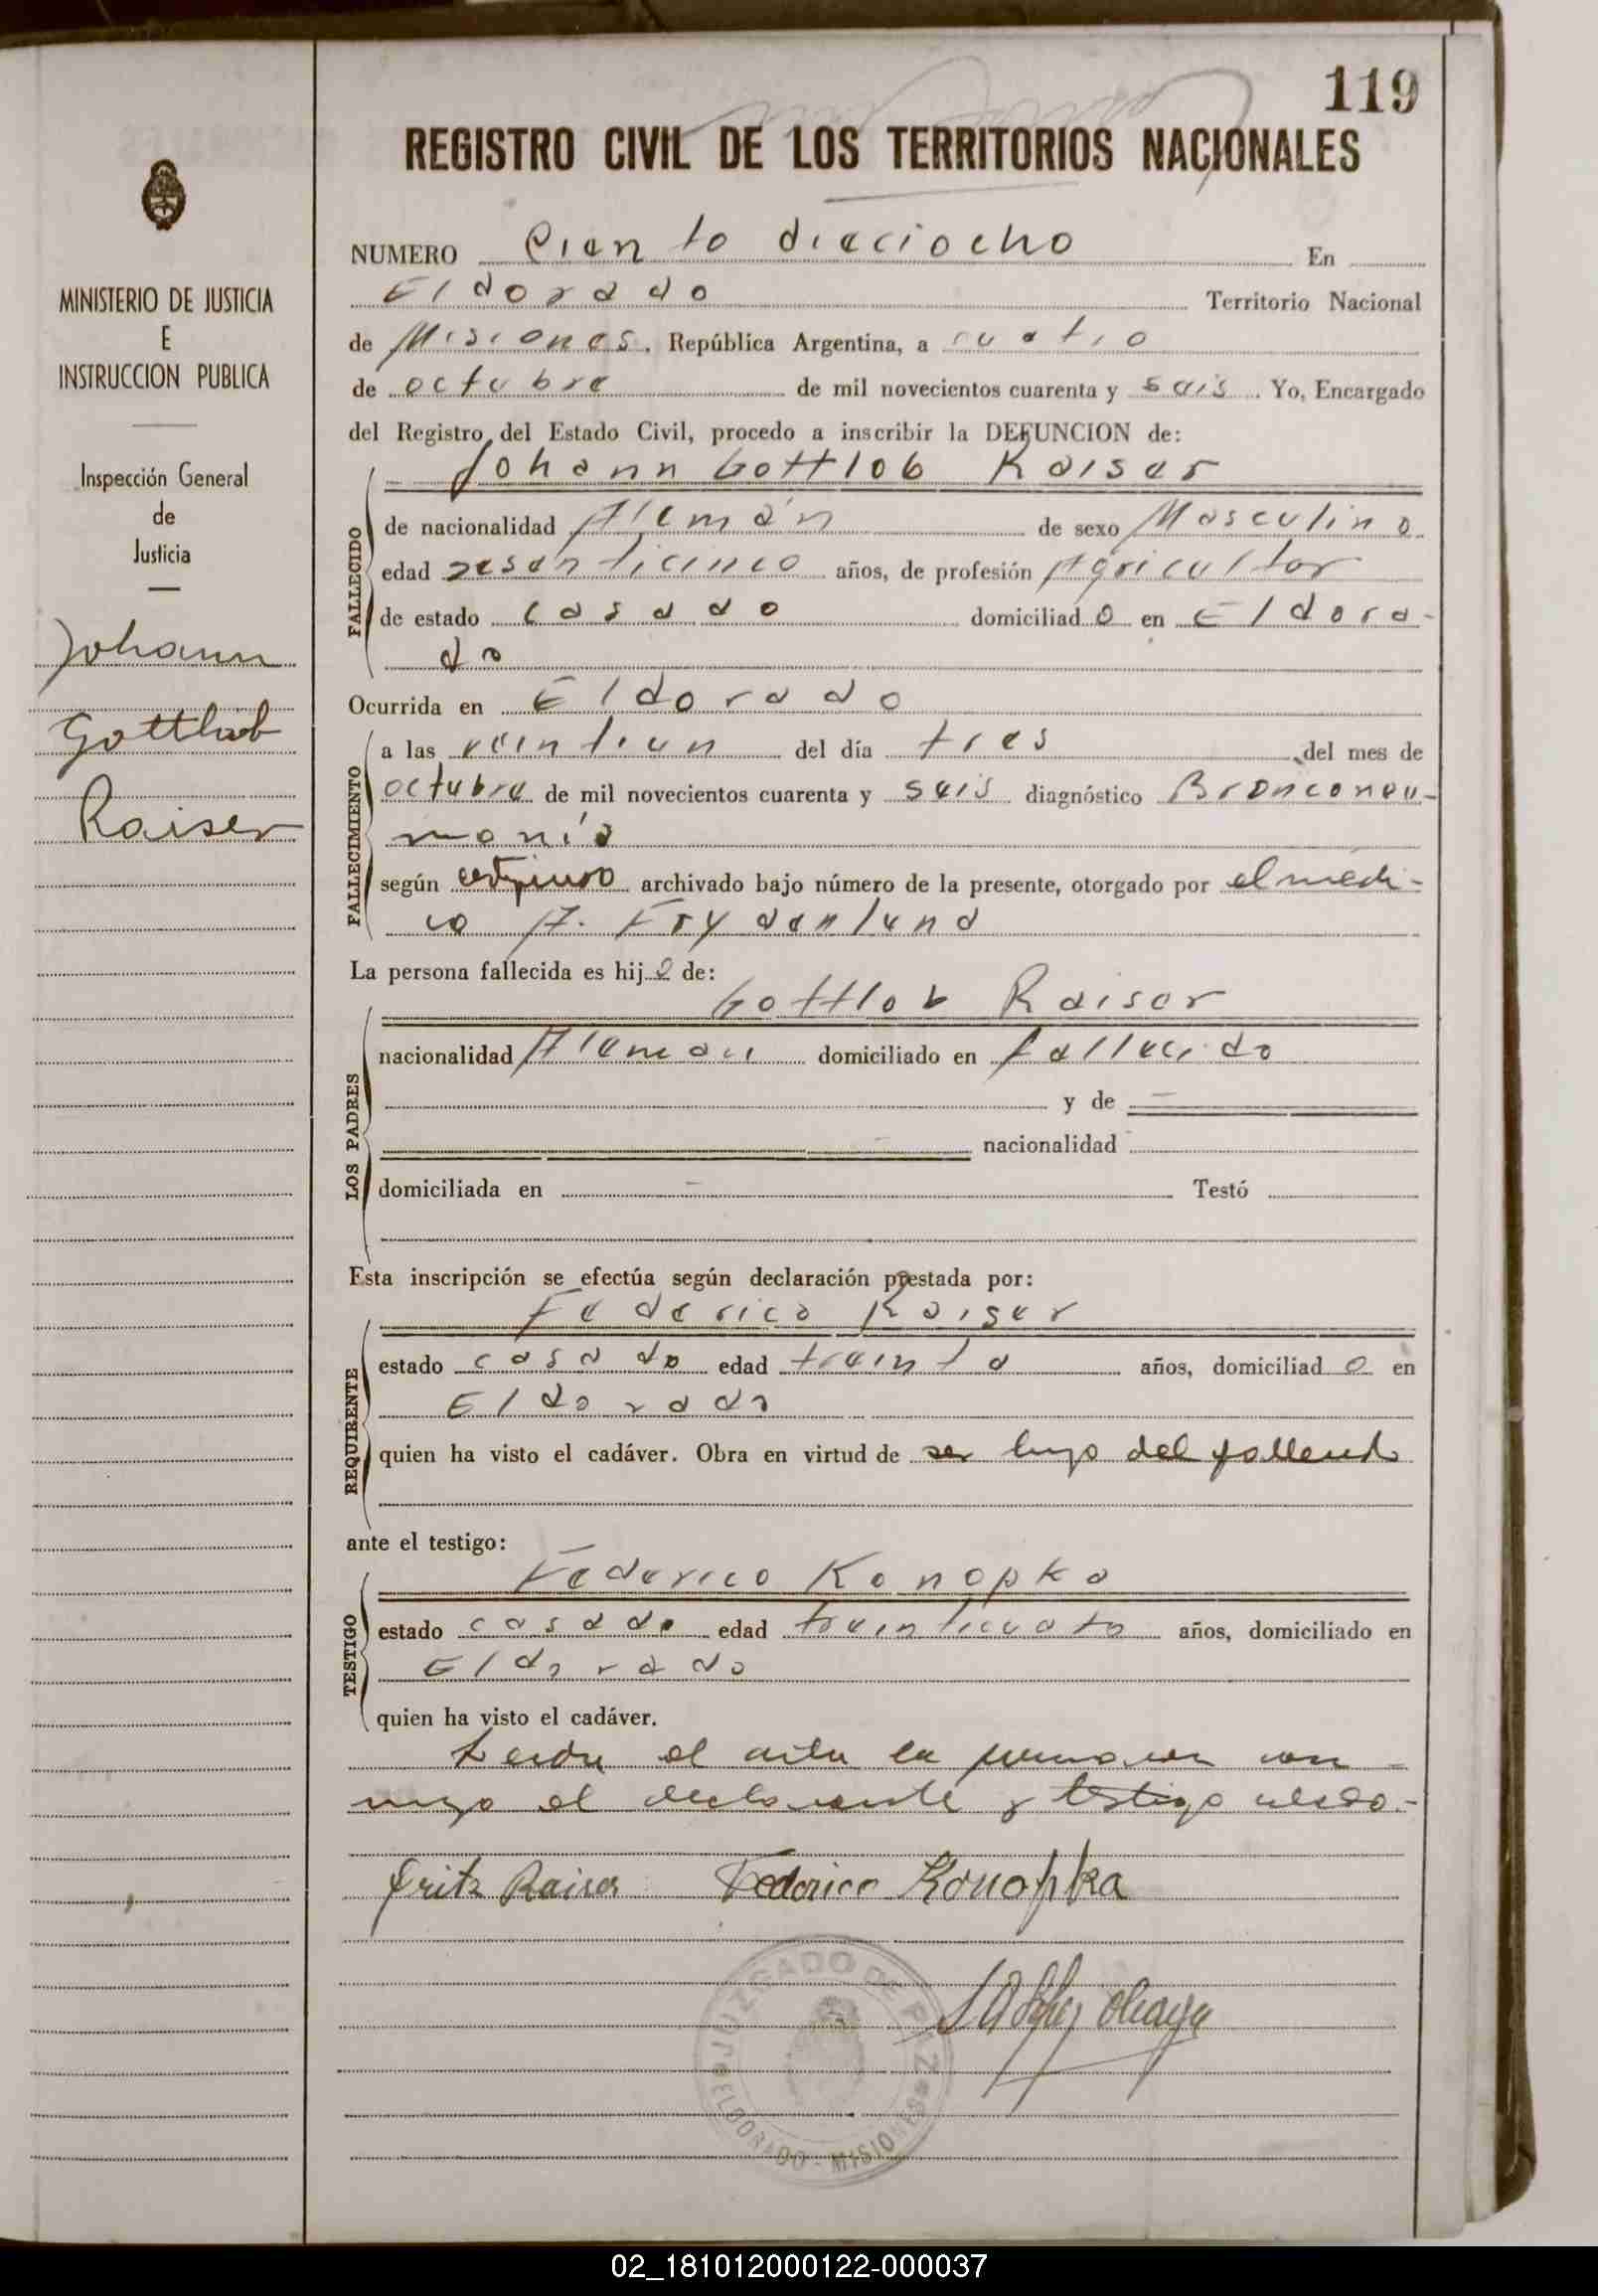 119
REGISTRO CIVIL DE LOS TERRITORIOS NACIONALES
MINISTERIO DE JUSTICIA
E
INSTRUCCION PUBLICA
Inspección General
de
Justicia
Johann
Gottlieb
Raiser
NUMERO Ciento dieciocho En
Eldorado Territorio Nacional
de Misiones. República Argentina, a cuatro
de octubre de mil novecientos cuarenta y seis. Yo, Encargado
del Registro del Estado Civil, procedo a inscribir la DEFUNCION de:
Johann Gottlob Raiser
FALLECIDO
de nacionalidad Alemán de sexo Masculino
edad sesenticinco años, de profesión Agricultor
de estado casado domiciliado en Eldora-
do
Ocurrida en Eldorado
FALLECIMIENTO
a las veintiun del día tres del mes de
octubre de mil novecientos cuarenta y seis diagnóstico Bronconeu-
monía
según archivado bajo número de la presente, otorgado por el médi-
co A. Frydenlund
La persona fallecida es hijo de:
Gottlob Raiser
LOS PADRES
nacionalidad Aleman domiciliado en fallecido
y de —
nacionalidad
domiciliada en – Testó
Esta inscripción se efectúa según declaración prestada por:
Federico Raiser
REQUIRENTE
estado casado edad treinta años, domiciliado en
Eldorado
quien ha visto el cadáver. Obra en virtud de ser hijo del fallecido
ante el testigo:
Federico Konopka
TESTIGO
estado casado edad treinticuatro años, domiciliado en
Eldorado
quien ha visto el cadáver.
Leida el acta la firmaron con-
migo el declarante y testigo
Fritz Raiser Federico Konopka
JUZGADO DE PAZ
ELDORADO - MISIONES
02_181012000122-000037